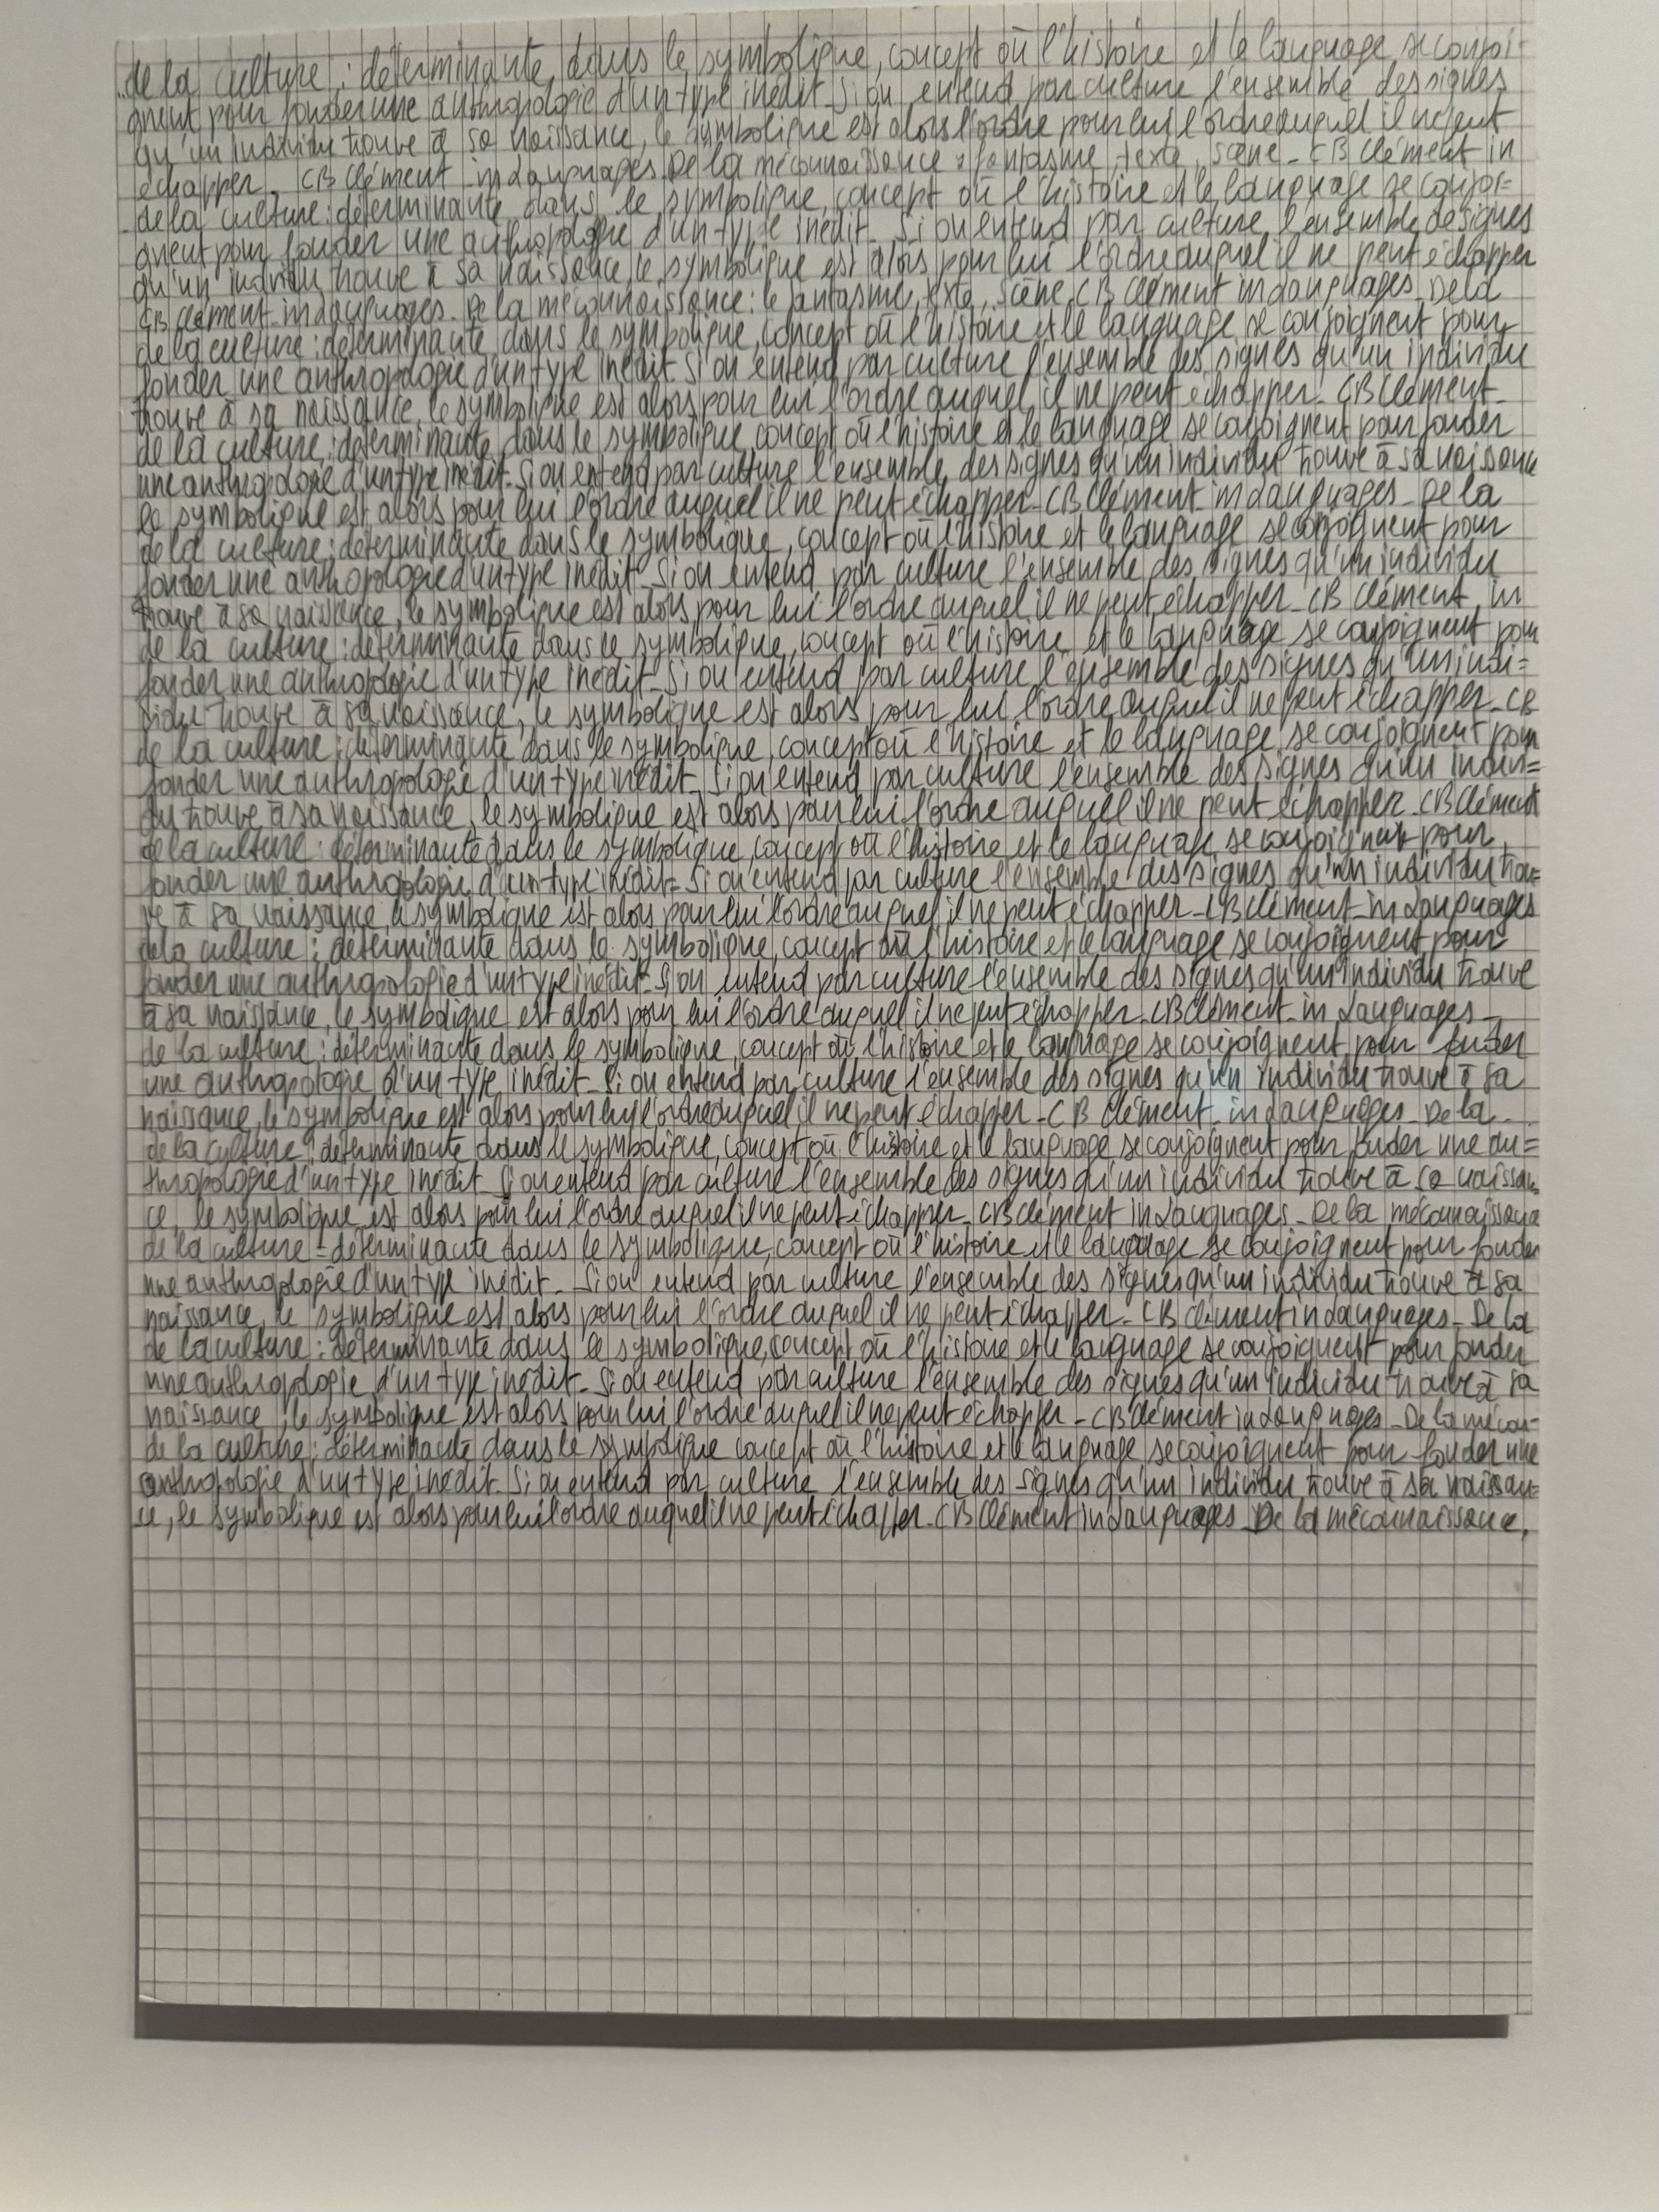 ..de la culture : déterminante, dans le symbolique, concept où l'histoire et le language se conjoi-
gnent pour fonder une anthropologie d'un type inédit_ Si on entend par culture l'ensemble des signes
qu'un individu trouve à sa naissance, le symbolique est alors l'ordre pour lui l'ordre auquel il ne peut
échapper. CB Clément_ in Languages. De la méconnaissance : fantasme, texte, scène_ CB Clément in
de la culture : déterminante dans le symbolique, concept où l'histoire et le language se conjoi=
gnent pour fonder une anthropologie d'un type inédit_ Si on entend par culture, l'ensemble de signes
qu'un individu trouve à sa naissance, le symbolique est alors pour lui l'ordre auquel il ne peut échapper
CB Clément_ in Languages_ De la méconnaissance : le fantasme, texte, scène, CB Clément in Languages, De la
de la culture : déterminante dans le symbolique, concept où l'histoire et le language se conjoignent pour
fonder une anthropologie d'un type inédit_ Si on entend par culture l'ensemble des signes qu'un individu
trouve à sa naissance, le symbolique est alors pour lui l'ordre auquel il ne peut échapper_ CB Clément_
de la culture : déterminante, dans le symbolique, concept où l'histoire et le language se conjoignent pour fonder
une anthropologie d'un type inédit_ Si on entend par culture l'ensemble des signes qu'un individu trouve à sa naissance
le symbolique est alors pour lui l'ordre auquel il ne peut échapper_ CB Clément_ in Languages_ De la
de la culture : déterminante dans le symbolique, concept où l'histoire et le language se conjoignent pour
fonder une anthropologie d'un type inédit_ Si on entend par culture l'ensemble des signes qu'un individu
trouve à sa naissance, le symbolique est alors pour lui l'ordre auquel il ne peut échapper_ CB Clément, in
de la culture : déterminante dans le symbolique, concept où l'histoire et le language se conjoignent pour
fonder une anthropologie d'un type inédit_ Si on entend par culture l'ensemble des signes qu'un indi=
vidu trouve à sa naissance, le symbolique est alors pour lui l'ordre auquel il ne peut échapper_ CB
de la culture : déterminante dans le symbolique, concept où l'histoire et le language se conjoignent pour
fonder une anthropologie d'un type inédit_ Si on entend par culture l'ensemble des signes qu'un indivi=
du trouve à sa naissance, le symbolique est alors pour lui l'ordre auquel il ne peut échapper_ CB Clément
de la culture : déterminante dans le symbolique, concept où l'histoire et le language se conjoignent pour
fonder une anthropologie d'un type inédit_ Si on entend par culture l'ensemble des signes qu'un individu trou=
ve à sa naissance, le symbolique est alors pour lui l'ordre auquel il ne peut échapper_ CB Clément_ in Languages
de la culture : déterminante dans le symbolique, concept où l'histoire et le language se conjoignent pour
fonder une anthropologie d'un type inédit_ Si on entend par culture l'ensemble des signes qu'un individu trouve
à sa naissance, le symbolique est alors pour lui l'ordre auquel il ne peut échapper_ CB Clément_ in Languages_
de la culture : déterminante dans le symbolique, concept où l'histoire et le language se conjoignent pour fonder
une anthropologie d'un type inédit_ Si on entend par culture l'ensemble des signes qu'un individu trouve à sa
naissance, le symbolique est alors pour lui l'ordre auquel il ne peut échapper_ CB Clément_ in Languages_ De la_
de la culture : déterminante dans le symbolique, concept où l'histoire et le language se conjoignent pour fonder une an=
thropologie d'un type inédit_ Si on entend par culture l'ensemble des signes qu'un individu trouve à sa naissan
ce, le symbolique est alors pour lui l'ordre auquel il ne peut échapper_ CB Clément in Languages_ De la méconnaissance
de la culture = déterminante dans le symbolique, concept où l'histoire et le language se conjoignent pour fonder
une anthropologie d'un type inédit_ Si on entend par culture l'ensemble des signes qu'un individu trouve à sa
naissance, le symbolique est alors pour lui l'ordre auquel il ne peut échapper_ CB Clément in Languages_ De la
de la culture : déterminante dans le symbolique, concept où l'histoire et le language se conjoignent pour fonder
une anthropologie d'un type inédit_ Si on entend par culture l'ensemble des signes qu'un individu trouve à sa
naissance, le symbolique est alors pour lui l'ordre auquel il ne peut échapper_ CB Clément in Languages_ De la mécon-
de la culture : déterminante dans le symbolique concept où l'histoire et le language se conjoignent pour fonder une
anthropologie d'un type inédit_ Si on entend par culture l'ensemble des signes qu'un individu trouve à sa naissan=
ce, le symbolique est alors pour lui l'ordre auquel il ne peut échapper_ CB Clément in Languages_ De la méconnaissance,